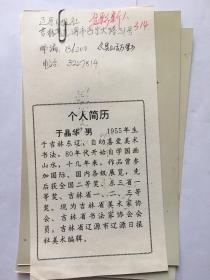 辽源日报社
吉林省辽源市
邮编:136200
电话:3227814
314
个人简历
于晶华 男 1955年生
于吉林东辽,自幼喜爱美术
书法,80年代开始自学国画
山水,十几年来,作品曾参
加国际、国内各级展览,先
后获全国二等奖、东三省一
等奖、吉林省一等奖、三等
奖等。现为吉林省美术家协
会、吉林省书法家协会会
员,吉林省辽源市辽源日报
社美术编辑。